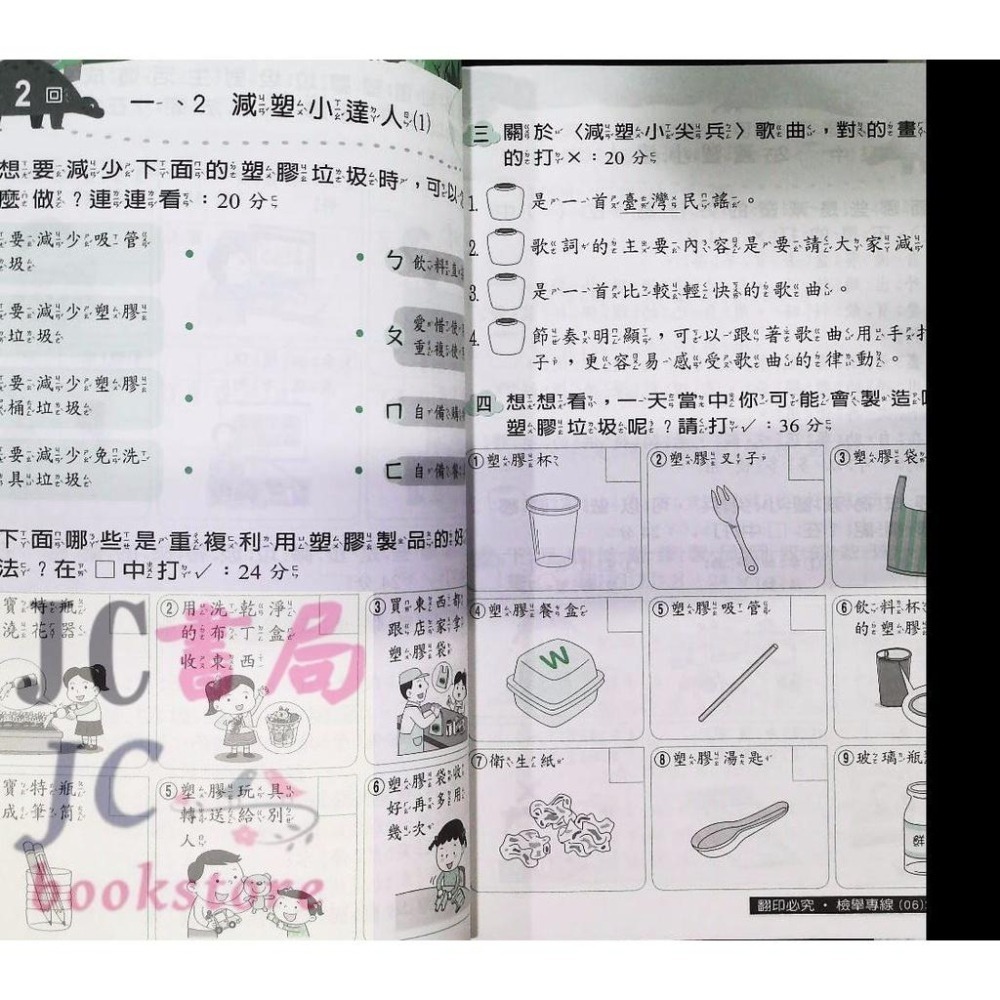 2回
一、2 減塑小達人(1)
想要減少下面的塑膠垃圾時，可以
麼做？連連看：20分
要減少吸管
圾
ㄅ 飲料直
要減少塑膠
垃圾
ㄆ 愛惜使
重複使
要減少塑膠
桶垃圾
ㄇ 自備購
要減少免洗
具垃圾
ㄈ 自備餐
下面哪些是重複利用塑膠製品的好
法？在□中打✓：24分
寶特瓶
澆花器
②用洗乾淨
的布丁盒
收東西
③買東西都
跟店家拿
塑膠袋
寶特瓶
成筆筒
⑤塑膠玩具
轉送給別
人
⑥塑膠袋收
好再多用
幾次
三 關於〈減塑小尖兵〉歌曲，對的畫
的打×：20分
1. 是一首臺灣民謠。
2. 歌詞的主要內容是要請大家減
3. 是一首比較輕快的歌曲。
4. 節奏明顯，可以跟著歌曲用手打
子，更容易感受歌曲的律動。
四 想想看，一天當中你可能會製造
塑膠垃圾呢？請打✓：36分
①塑膠杯
②塑膠叉子
③塑膠袋
④塑膠餐盒
W
⑤塑膠吸管
⑥飲料杯
的塑膠
⑦衛生紙
⑧塑膠湯匙
⑨玻璃瓶
鮮
翻印必究・檢舉專線(06)
JC書局
JC
bookstore